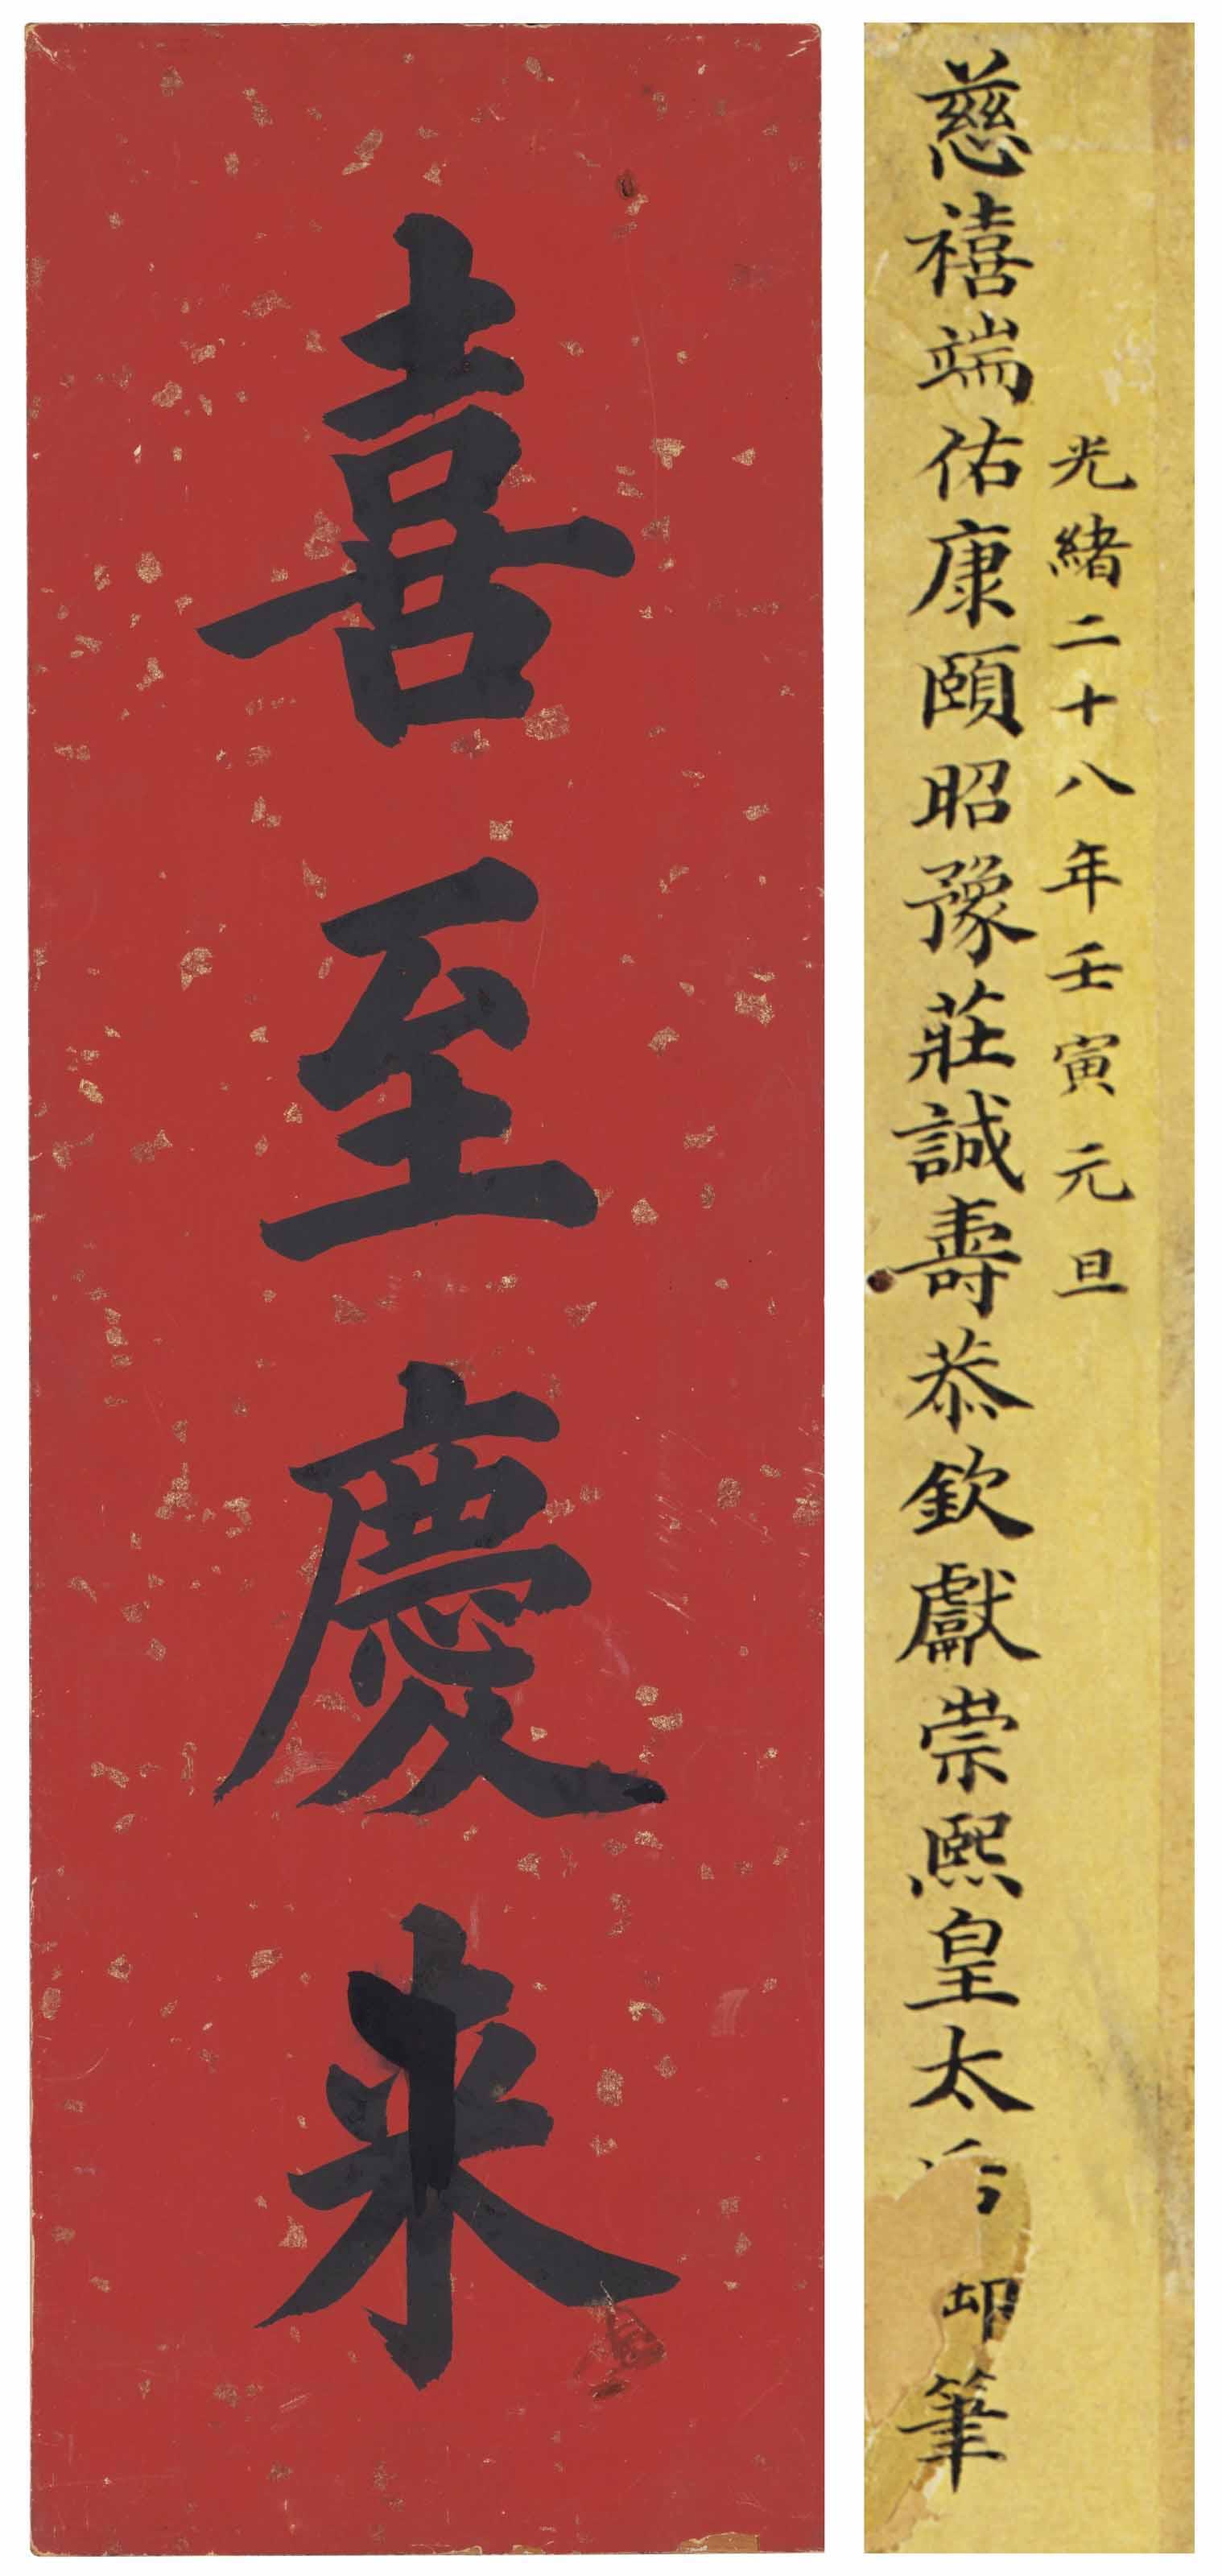 喜至慶来
光緒二十八年壬寅元旦
慈禧端佑康頤昭豫莊誠壽恭欽獻崇熙皇太后御筆